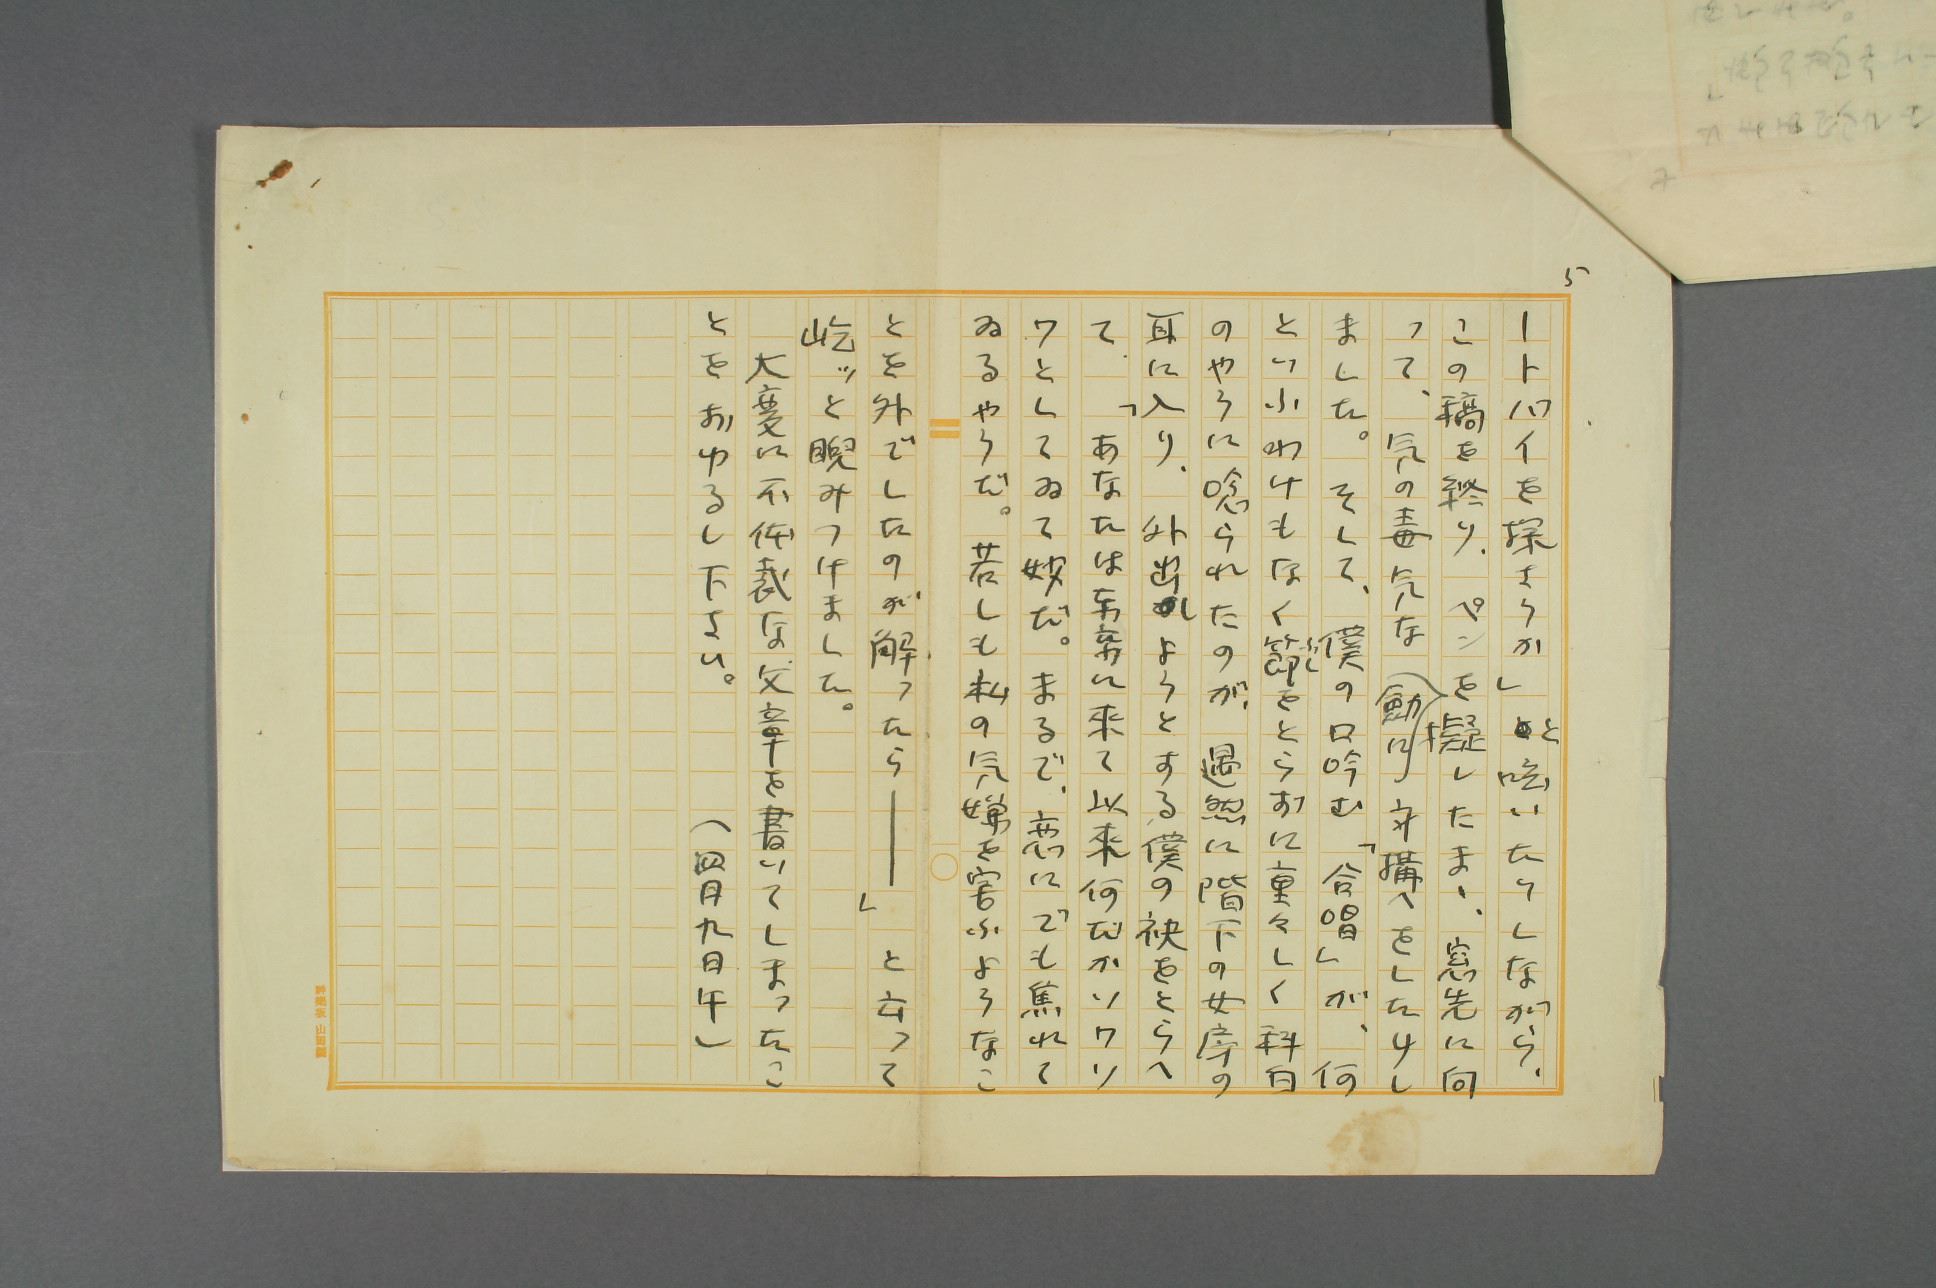 5
ートバイを探さうか」と呟いたりしながら、
この稿を終り、ペンを擬したまゝ、窓先に向
つて、気の毒気な（動に）身構へをしたりし
ました。そして、僕の口吟む「合唱」が、何
といふわけもなく節ふしをとらずに重々しく科白
のやうに唸られたのが、遇然に階下の女房の
耳に入り、外出しようとする僕の袂をとらへ
て、「あなたは東京に来て以来何だかソワソ
ワとしてゐて妙だ。まるで、恋にでも焦れて
ゐるやうだ。若しも私の気嫌を害ふようなこ
とを外でしたのが解つたら――」と云つて
屹ッと睨みつけました。
大変に不体裁な文章を書いてしまつたこ
とをおゆるし下さい。（四月九日午）